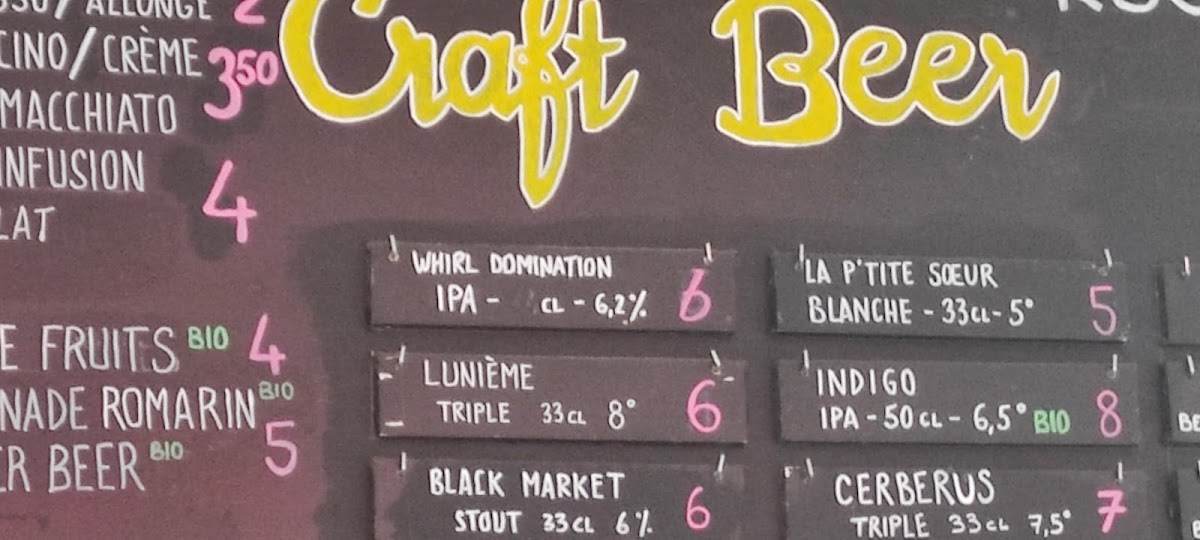 ALLONGÉ 2
CINO/CRÈME 350
MACCHIATO
INFUSION 4
LAT
E FRUITS BIO 4
NADE ROMARIN BIO
ER BEER BIO 5
Craft Beer
WHIRL DOMINATION
IPA - CL - 6,2% 6
LUNIÈME
TRIPLE 33CL 8° 6
BLACK MARKET
STOUT 33CL 6% 6
LA P'TITE SŒUR
BLANCHE - 33CL - 5° 5
INDIGO
IPA - 50CL - 6,5° BIO 8
CERBERUS
TRIPLE 33CL 7,5° 7
BE